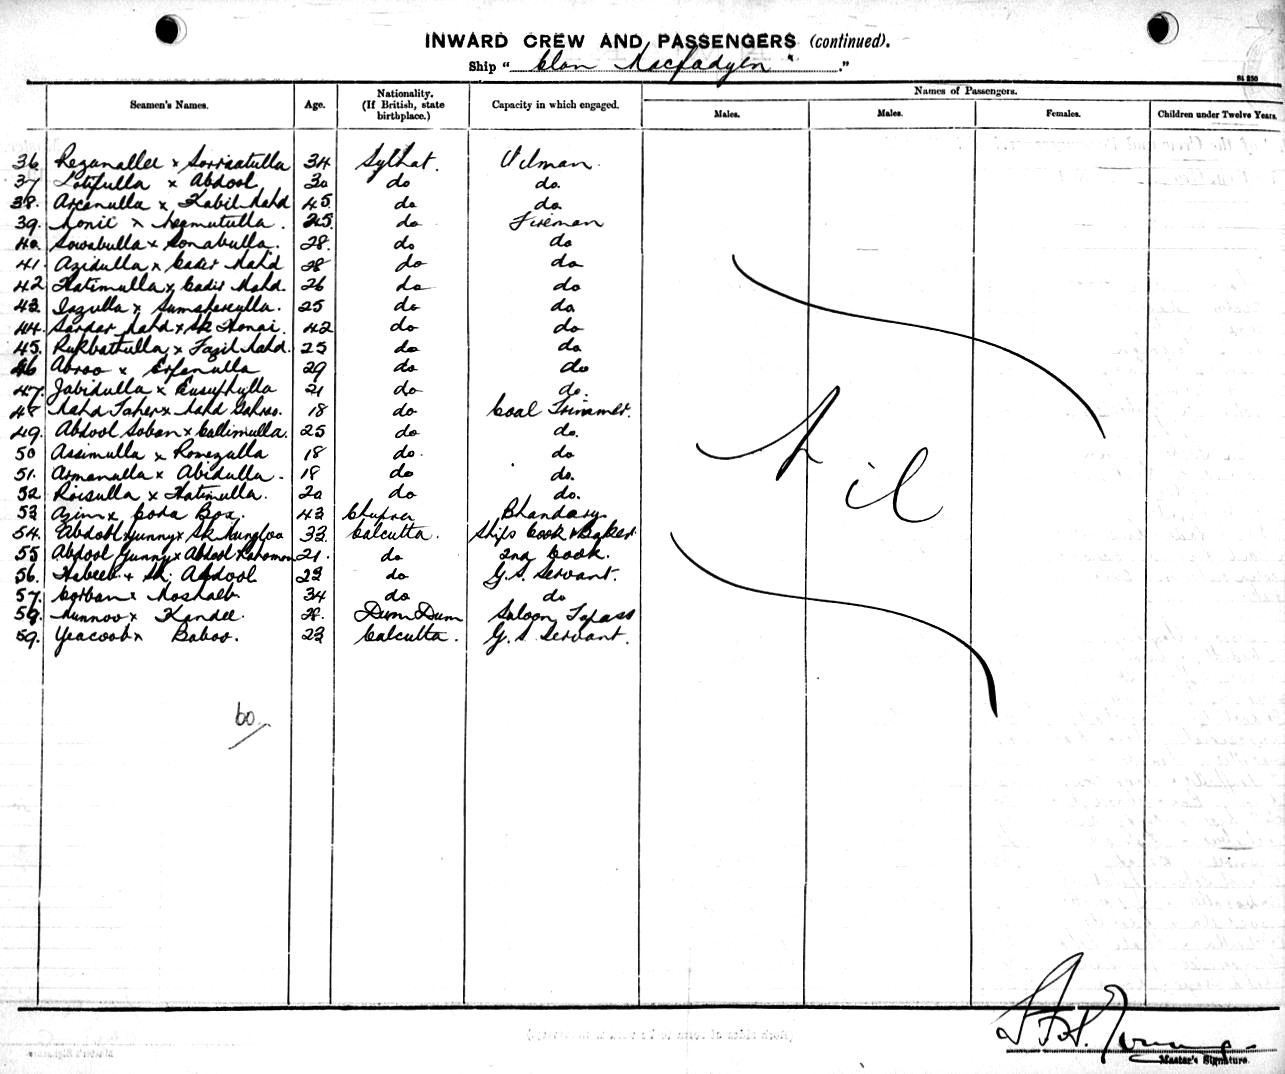 INWARD CREW AND PASSENGERS (continued).
Ship "Clan Macfadyen"
Seamen's Names. Age. Nationality. (If British, state birthplace.) Capacity in which engaged. Names of Passengers.
Males. Males. Females. Children under Twelve Years.
36 Rezanallee x 34 Sylhat. Oilman.
37 Lotifulla x Abdool 30 do do.
38. Arcanulla x Kabil Mahd 45 do do.
39. Monic x 25. do Fireman
40. Sowabulla x Sonabulla. 28. do do
41 Azidulla x Cader Mahd 28 do do
42 Hatimulla x Cadir Mahd. 26 do do
43. x 25 do do
44. Sardar Mahd x Sk Monai. 42 do do
45. Rukbathulla x Fazil Mahd. 25 do do
46 Abroo x Erfanulla 29 do do
47. Jabidulla x Eusuphulla 21 do do.
48 Mahd Taher x Mahd 18 do Coal Trimmer.
49. Abdool Soban x Callimulla. 25 do do.
50 Assimulla x Romezulla 18 do. do
51. Armanulla x Abidulla. 18 do do.
52 Roisulla x Hatimulla. 20 do do.
53 Azim x Coda Box. 43 Chupra Bhandary
54. Abdool Gunny x Sk Mungloo 33 Calcutta. Ships Cook & Baker.
55 Abdool Gunny x Abdool Rahomon 21. do 2nd Cook.
56. Habeeb x Sk. Abdool 23 do G.S. Servant.
57. Corban x Moshalb 34 do do
59. Munnoo x Kandee. 28. Dum Dum Saloon Topass
59. Yeacoob x Baboo. 23 Calcutta. G.S. Servant.
Nil
60
Young
Master's Signature.